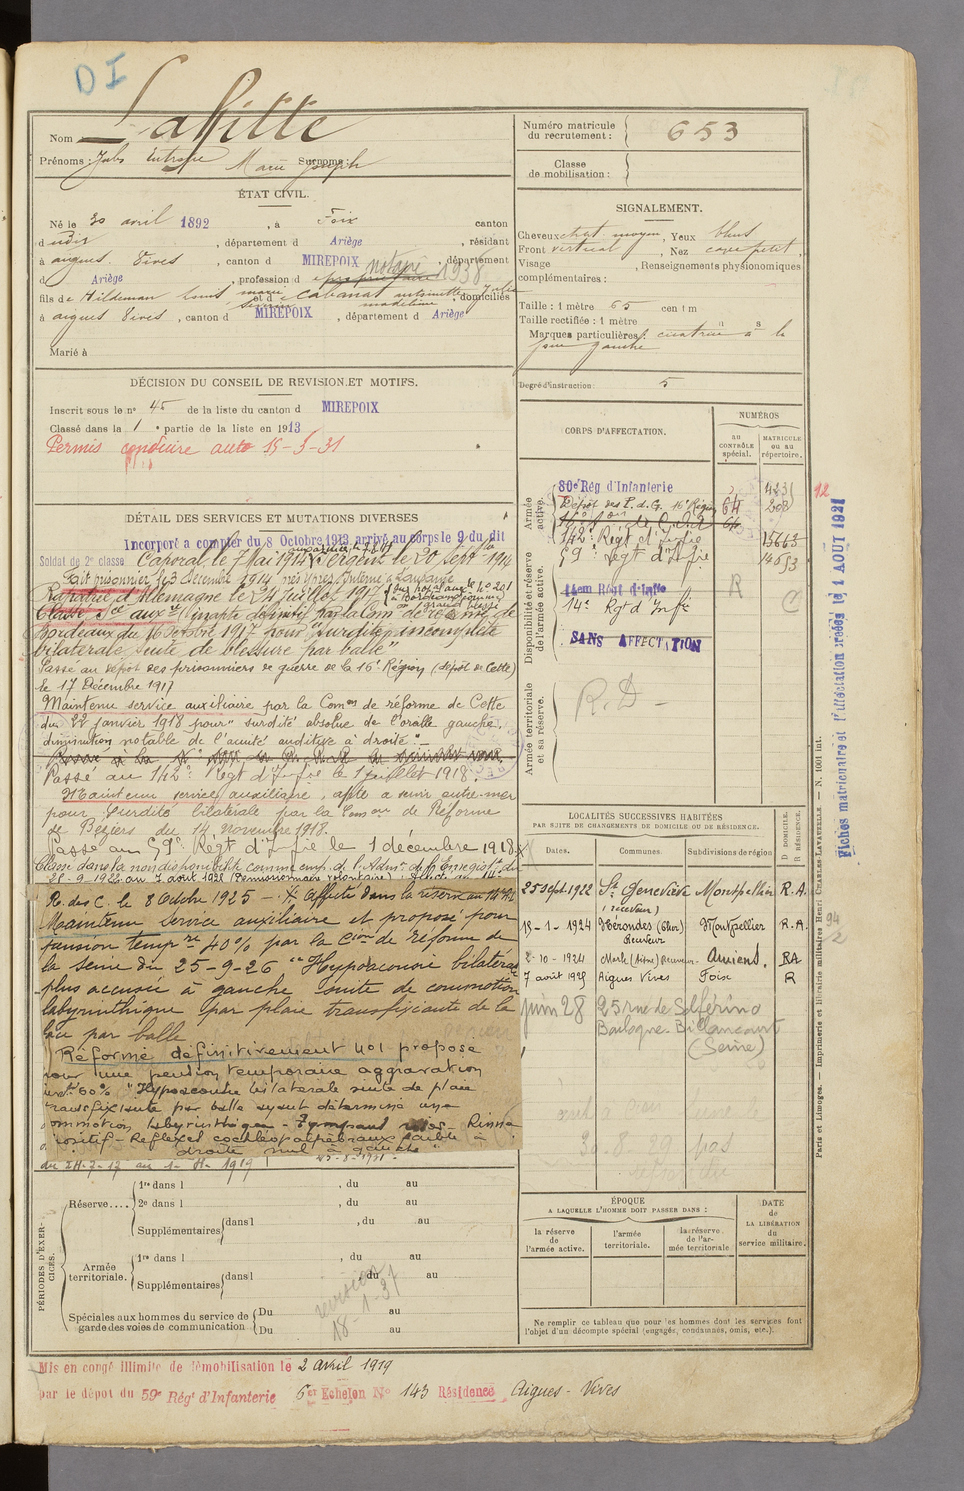 DI
Nom Laffitte
Prénoms : Jules Marie Surnoms : Joseph
ÉTAT CIVIL.
Né le 30 avril 1892, à Foix canton
d udit, département d Ariège, résidant
à aigues Vives, canton d MIREPOIX, département
d Ariège, profession d notaire 1938
fils de Hildeman Louis marie et d e Cabanat antoinette Julie, domiciliés
à aigues Vives, canton d MIREPOIX, département d Ariège
Marié à
DÉCISION DU CONSEIL DE REVISION ET MOTIFS.
Inscrit sous le n° 45 de la liste du canton d MIREPOIX
Classé dans la 1e partie de la liste en 1913
Permis conduire auto 15-5-31
DÉTAIL DES SERVICES ET MUTATIONS DIVERSES
Incorporé a compter du 8 Octobre 1913 arrivé au corps le 9 du dit
Soldat de 2e classe Caporal le 7 Mai 1914 Sergent le 20 Septbre 1914
Fait prisonnier le 3 Décembre 1914 près Ypres Interné à Lausanne
Rapatrié d'Allemagne le 24 Juillet 1917
Classé Sce auxre inapte définitif par la Com de réforme de
Bordeaux du 16 Octobre 1917 pour "surdité incomplète
bilatérale suite de blessure par balle"
Passé au dépôt des prisonniers de guerre de la 16e Région (dépôt de Cette)
le 17 Décembre 1917
Maintenu service auxiliaire par la Comon de réforme de Cette
du 22 janvier 1918 pour "surdité absolue de l'oreille gauche
diminution notable de l'acuité auditive à droite"
Passé au 142e Régt d'Infrie le 1 juillet 1918.
Maintenu service auxiliaire, apte à servir outre-mer
pour surdité bilatérale par la Comon de Réforme
de Béziers du 14 novembre 1918.
Passé au 59e Régt d'Infrie le 1 décembre 1918
Classé dans la non disponibilité comme emp. de l'Admon de l'Enregist. du
R. des C. le 8 Octobre 1925 - Affecté dans la réserve au 14e R.I.
Maintenu Service auxiliaire et proposé pour
pension tempre 40% par la Cion de réforme de
la Seine du 25-9-26 "Hypoacousie bilatérale
plus accusée à gauche suite de commotion
labyrinthique par plaie transfixiante de la
face par balle
Réformé définitivement N°1 proposé
pour une pension temporaire aggravation
inv. 60% "Hypoacousie bilatérale suite de plaie
transfixiante par balle ayant déterminé une
commotion labyrinthique - Rinne
positif - Réflexes cochléopalpébraux faible à
droite nul à gauche"
du 24-7-17 au 1-8-1919
PÉRIODES D'EXERCICES.
Réserve....
1re dans l , du au
2e dans l , du au
Supplémentaires dans l , du au
Armée territoriale.
1re dans l , du au
Supplémentaires dans l , du au
Spéciales aux hommes du service de garde des voies de communication
Du au
Du au
revision 18-1-37
Mis en congé illimité de démobilisation le 2 avril 1919
par le dépot du 59e Régt d'Infanterie 6e Echelon N° 143 Résidence Aigues-Vives
Numéro matricule du recrutement : 653
Classe de mobilisation :
SIGNALEMENT.
Cheveux chat. moyen, Yeux bleus
Front vertical, Nez cave petit,
Visage , Renseignements physionomiques
complémentaires :
Taille : 1 mètre 65 centim
Taille rectifiée : 1 mètre
Marques particulières : cicatrice à la
joue gauche
Degré d'instruction : 5
CORPS D'AFFECTATION.
NUMÉROS
AU CONTRÔLE spécial.
MATRICULE ou au répertoire.
Armée active.
80e Rég d'Infanterie 4231
Dépôt des P. d. G. 16e Région 64 208
142e Régt d'Infrie 15662
59e Régt d'Infrie 14053
Disponibilité et réserve de l'armée active.
14em Régt d'Infie R
14e Rgt d'Infie C
SANS AFFECTATION
Armée territoriale et sa réserve.
R.D-
12
Fiches matriculaire et d'attestation créées le 1 AOUT 1921
LOCALITÉS SUCCESSIVES HABITÉES
PAR SUITE DE CHANGEMENTS DE DOMICILE OU DE RÉSIDENCE.
Dates. Communes. Subdivisions de région
D DOMICILE. R RÉSIDENCE.
25 Sept 1922 Ste Geneviève (receveur) Montpellier R.A.
15-1-1924 Nérondes (Cher) Receveur Montpellier R.A.
2-10-1924 Marle (Aisne) Receveur Amiens. RA
7 août 1925 Aigues Vives Foix R
juin 28 25 rue de Solférino
Boulogne-Billancourt
(Seine)
30-8-29 pas
94
2
ÉPOQUE
A LAQUELLE L'HOMME DOIT PASSER DANS :
la réserve de l'armée active.
l'armée territoriale.
la réserve de l'armée territoriale
DATE de LA LIBÉRATION du service militaire.
Ne remplir ce tableau que pour les hommes dont les services font
l'objet d'un décompte spécial (engagés, condamnés, omis, etc.).
Paris et Limoges. — Imprimerie et librairie militaires Henri CHARLES-LAVAUZELLE. — N. 1001 int.